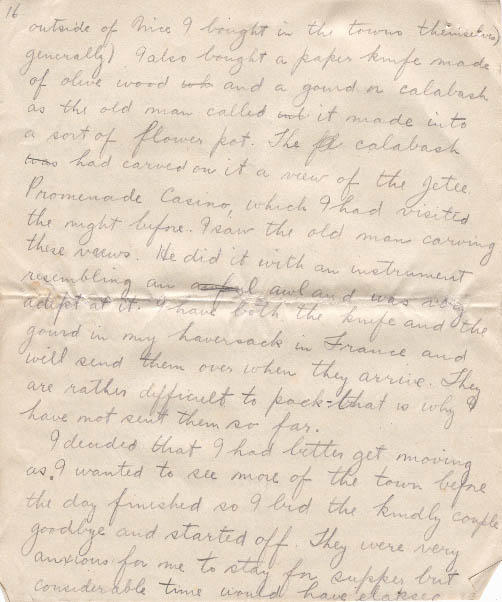 16
outside of Nice I bought in the towns themselves
generally) I also bought a paper knife made
of olive wood and a gourd or calabash
as the old man called it made into
a sort of flower pot. The calabash
was had carved on it a view of the Jetee
Promenade Casino, which I had visited
the night before. I saw the old man carving
these views. He did it with an instrument
resembling an awful awl and was very
adept at it. I have both the knife and the
gourd in my haversack in France and
will send them over when they arrive. They
are rather difficult to pack - that is why I
have not sent them so far.
I decided that I had better get moving
as I wanted to see more of the town before
the day finished so I bid the kindly couple
goodbye and started off. They were very
anxious for me to stay for supper but
considerable time would have elapsed